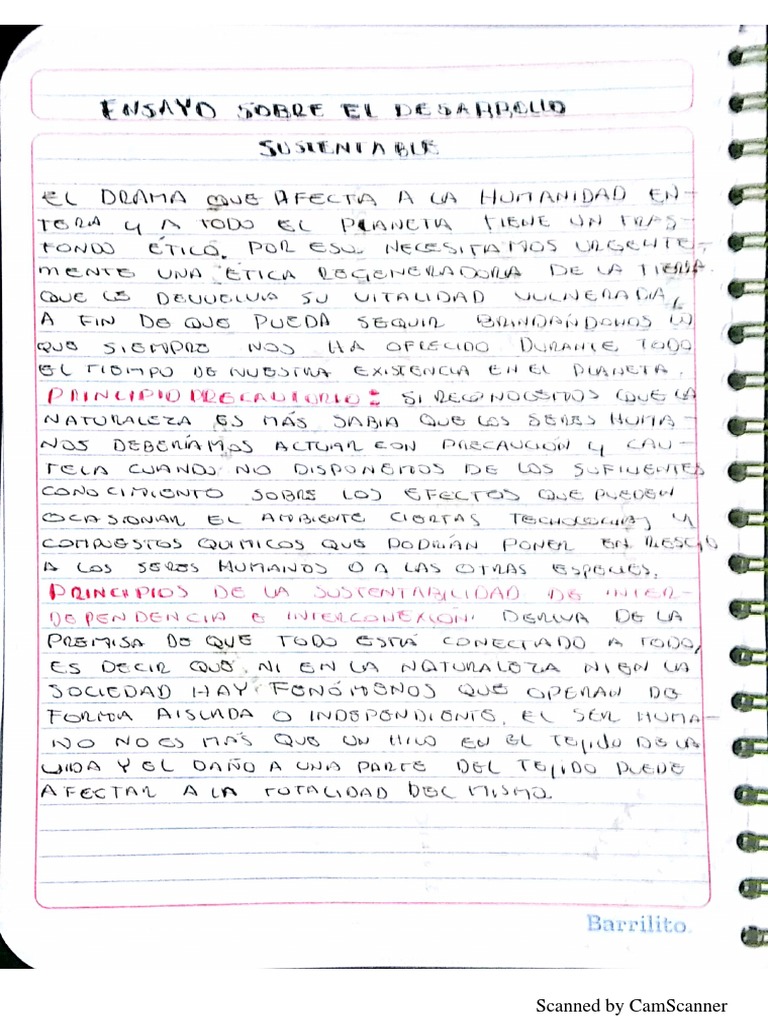 ENSAYO SOBRE EL DESARROLLO
SUSTENTABLE
EL DRAMA QUE AFECTA A LA HUMANIDAD EN-
TERA Y A TODO EL PLANETA TIENE UN TRAS-
FONDO ÉTICO. POR ESO NECESITAMOS URGENTE-
MENTE UNA ÉTICA REGENERADORA DE LA TIERRA
QUE LE DEVUELVA SU VITALIDAD VULNERADA,
A FIN DE QUE PUEDA SEGUIR BRINDÁNDONOS LO
QUE SIEMPRE NOS HA OFRECIDO DURANTE TODO
EL TIEMPO DE NUESTRA EXISTENCIA EN EL PLANETA.
PRINCIPIO PRECAUTORIO: SI RECONOCEMOS QUE LA
NATURALEZA ES MÁS SABIA QUE LOS SERES HUMA-
NOS DEBERÍAMOS ACTUAR CON PRECAUCIÓN Y CAU-
TELA CUANDO NO DISPONEMOS DE LOS SUFICIENTES
CONOCIMIENTO SOBRE LOS EFECTOS QUE PUEDEN
OCASIONAR EL AMBIENTE CIERTAS TECNOLOGIAS Y
COMPUESTOS QUIMICOS QUE PODRÍAN PONER EN RIESGO
A LOS SERES HUMANOS O A LAS OTRAS ESPECIES.
PRINCIPIOS DE LA SUSTENTABILIDAD DE INTER-
DEPENDENCIA E INTERCONEXIÓN: DERIVA DE LA
PREMISA DE QUE TODO ESTÁ CONECTADO A TODO,
ES DECIR QUE NI EN LA NATURALEZA NI EN LA
SOCIEDAD HAY FENÓMENOS QUE OPERAN DE
FORMA AISLADA O INDEPENDIENTE. EL SER HUMA-
NO NO ES MÁS QUE UN HILO EN EL TEJIDO DE LA
VIDA Y EL DAÑO A UNA PARTE DEL TEJIDO PUEDE
AFECTAR A LA TOTALIDAD DEL MISMO.
Barrilito
Scanned by CamScanner